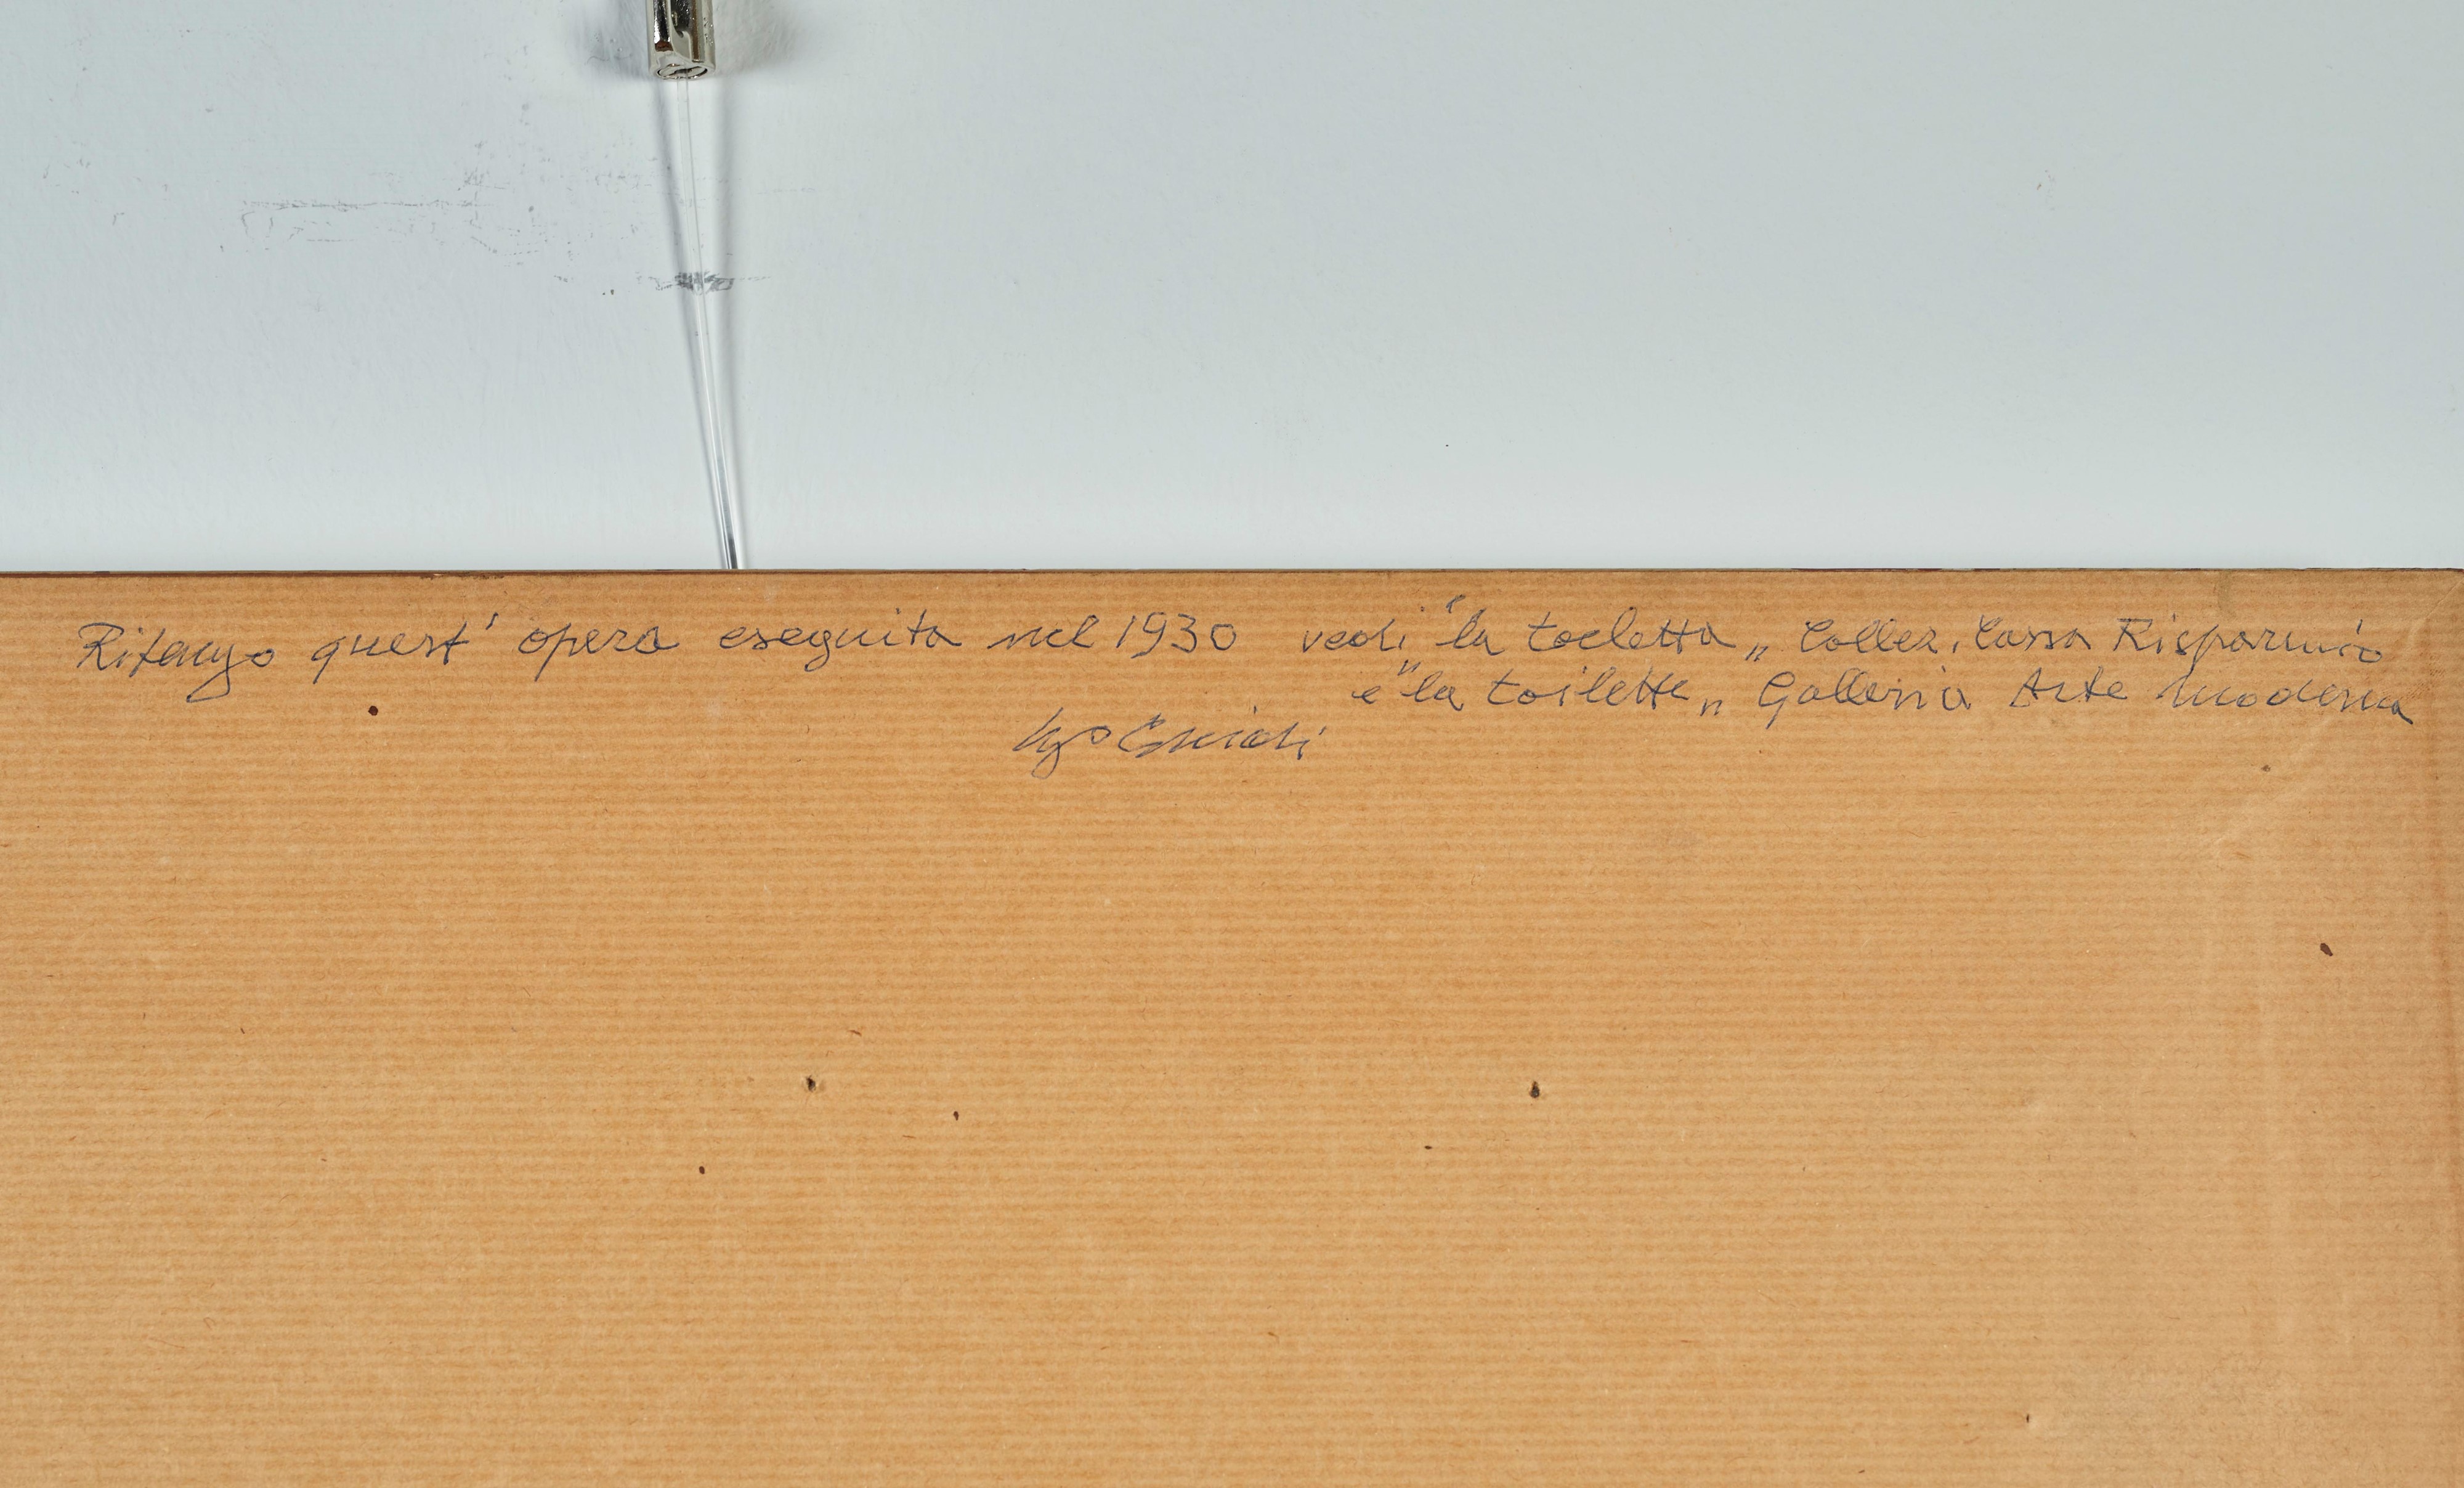 Ritengo quest' opera eseguita nel 1930 vedi "la toeletta„ Collez. Cassa Risparmio
e "la toilette„ Galleria Arte Moderna
Ugo